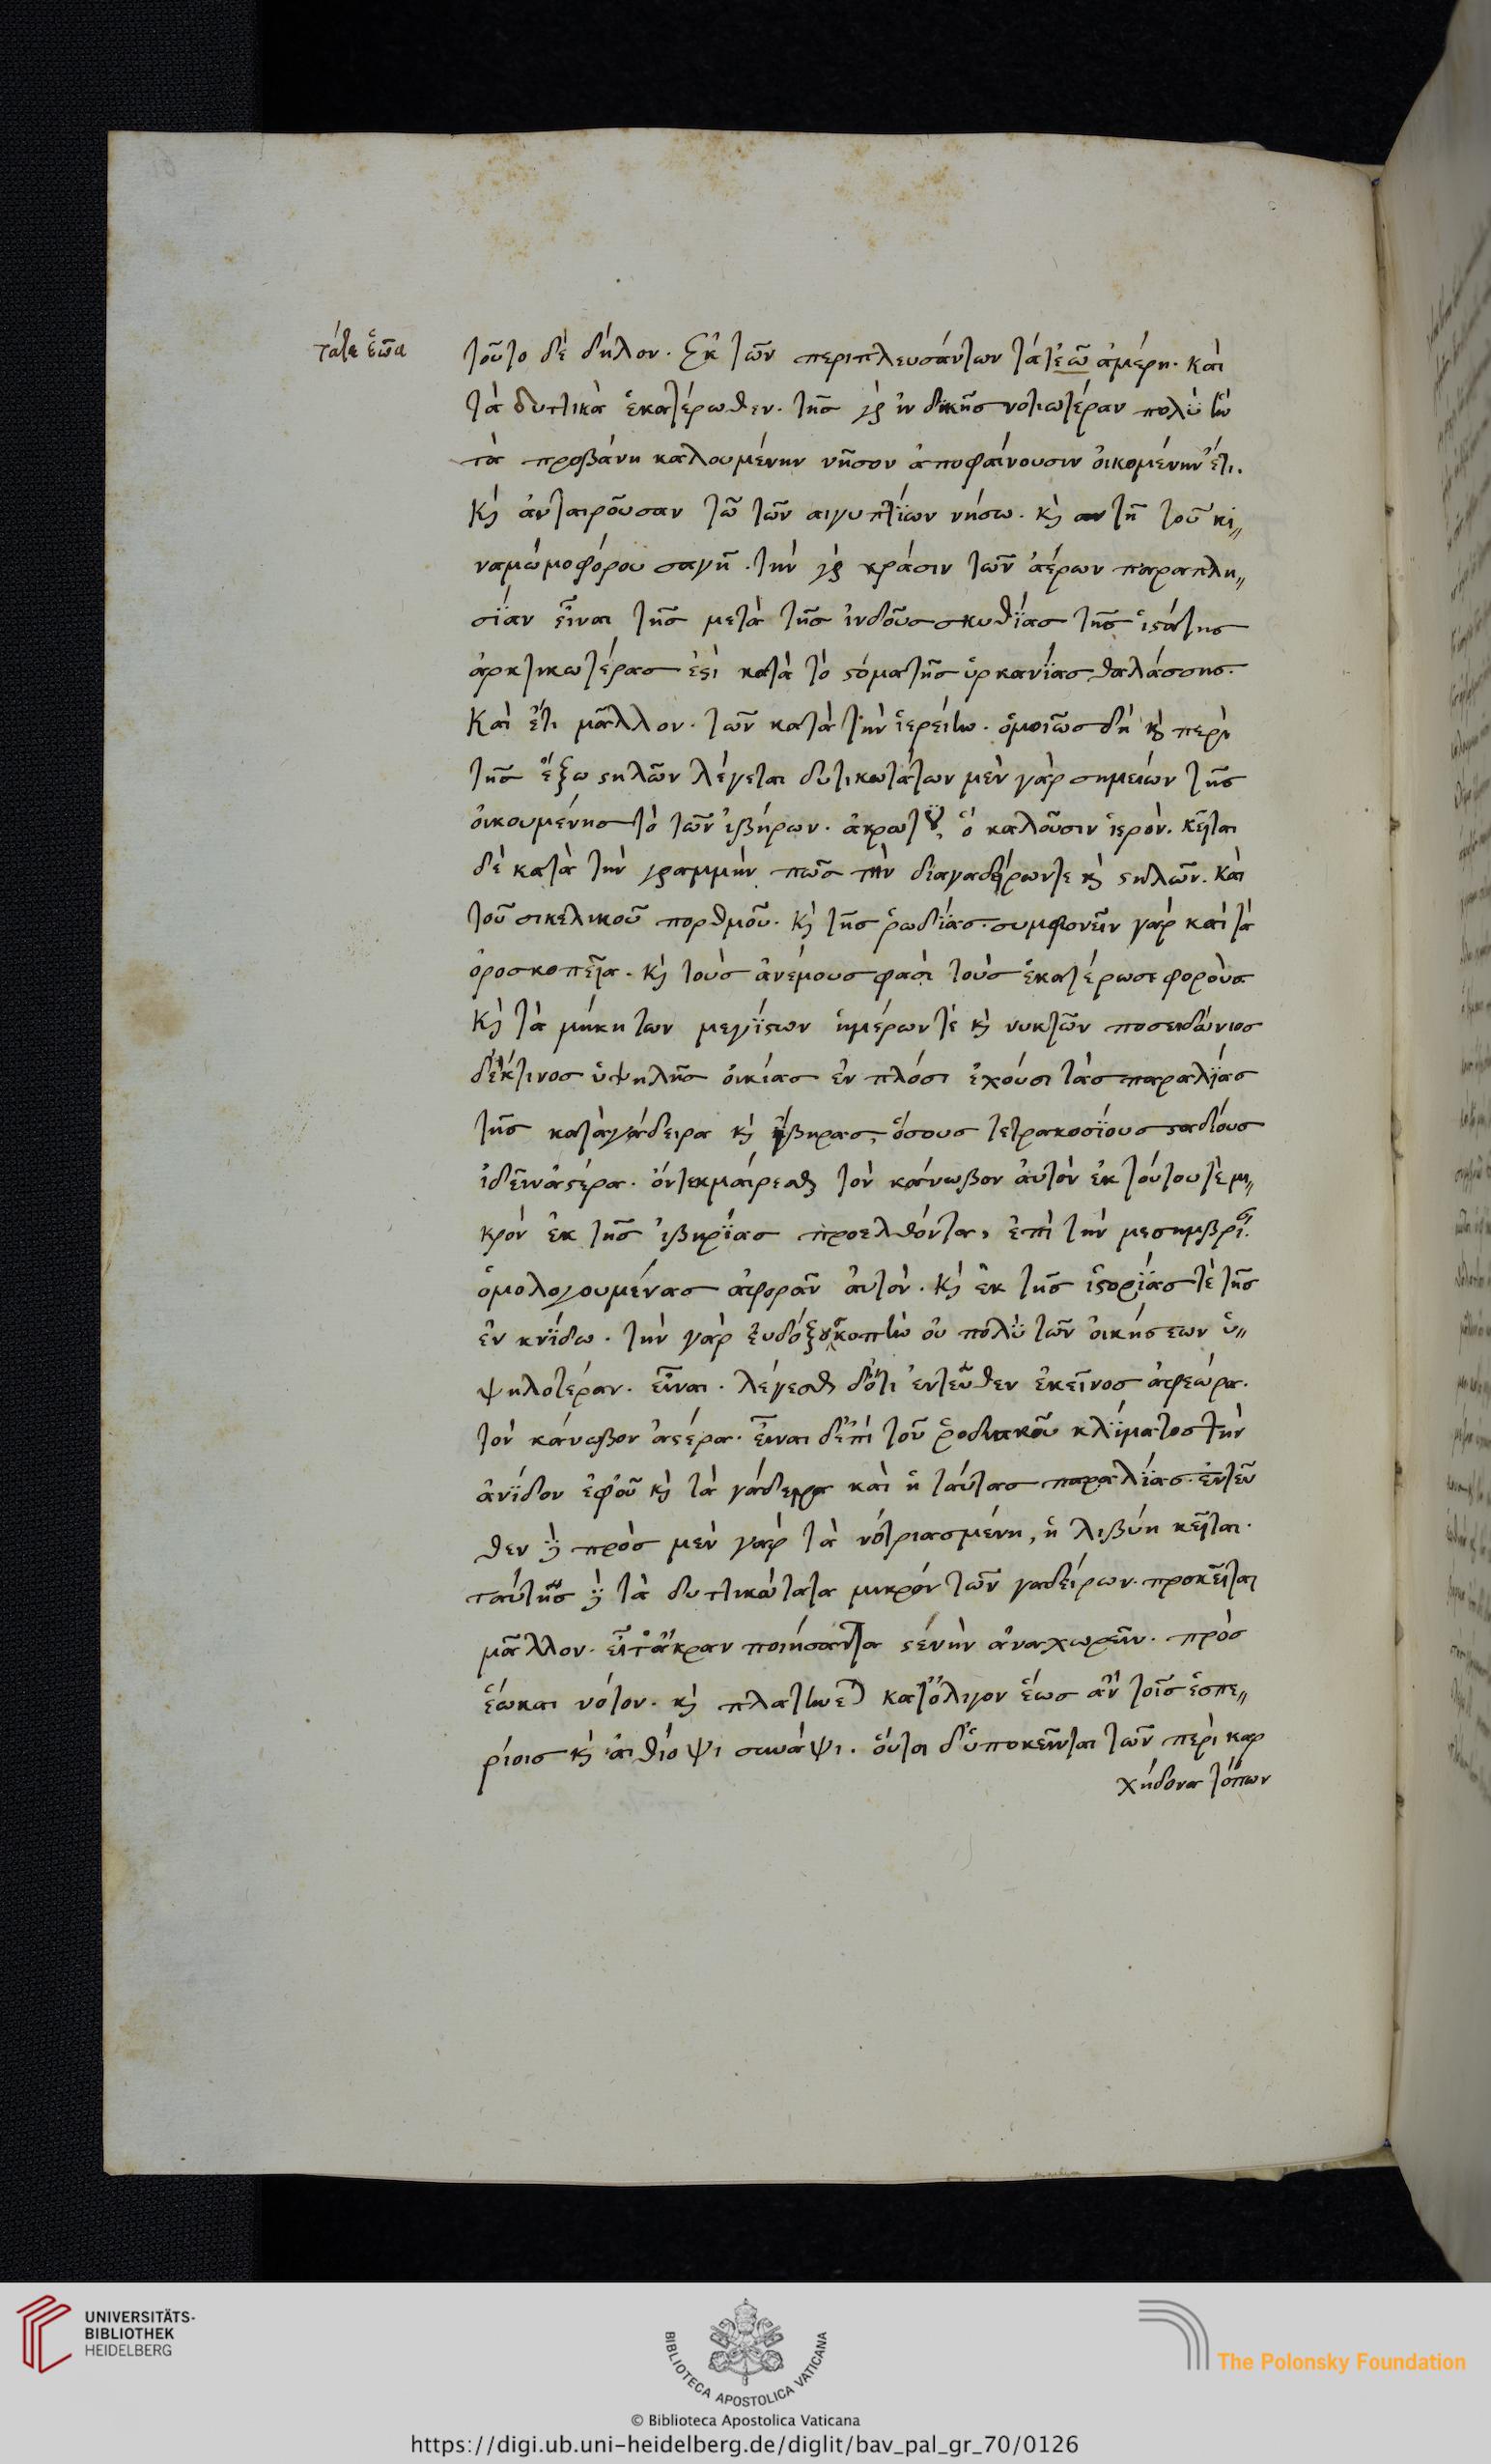 τάτε ἑῶα
τοῦτο δὲ δῆλον. Ἐκ τῶν περιπλευσάντων τάτ ἑῶ ἀμέρη. καὶ
τὰ δυτικὰ ἑκατέρωθεν. τῆς γὰρ ἰνδικῆς νοτιωτέραν πολὺ τὴν
τὰ προβάνη καλουμένην νῆσον ἀποφαίνουσιν ὀικομένην ἔτι.
κὶ ἀνταιροῦσαν τῶ τῶν αιγυπτίων νήσω. κὶ τῆ τοῦ κι
ναμώμοφόρου σαγῆ. τὴν γὰρ κράσιν τῶν ἀέρων παραπλη
σίαν εἶναι τῆς μετὰ τῆς ἰνδοῦς σκυθίας τῆς ἱστάτης
ἀρκτικωτέρας ἐστὶ κατὰ τὸ στόμα τῆς ὑρκανίας θαλάσσης.
Καὶ ἔτι μᾶλλον. τῶν κατὰ τὴν ἱερείην. ὁμοιῶς δὴ κὶ περὶ
τῆς ἔξω στηλῶν λέγεται δυτικωτάτων μὲν γὰρ σημείων τῆς
ὀικουμένης τὸ τῶν ἰβήρων. ἀκρωτ ὁ καλοῦσιν ἱερὸν. κεῖται
δὲ κατὰ τὴν γραμμὴν πῶς τὴν διαγαδείρωντε κὶ στηλῶν. καὶ
τοῦ σικελικοῦ πορθμοῦ. κὶ τῆς ῥωδίας. συμφονεῖν γὰρ καὶ τὰ
ὁροσκοπεῖα. κὶ τοὺς ἀνέμους φασὶ τοὺς ἑκατέρωσε φοροὺς
κὶ τὰ μήκη των μεγίστων ἡμέρων τὲ κὶ νυκτῶν ποσειδώνιος
δέκτινος ὑψηλῆς ὀικίας ἐν πλόσι ἐχούσι τὰς παραλίας
τῆς κατὰγάδειρα κὶ ἴβηρας, ὅσους τετρακοσίους σταδίους
ἰδεῖν ἀστέρα. ὅντεκμαίρεσθαι τὸν κάνωβον ἀυτὸν ἐκ τούτου τὲ μι
κρὸν ἐκ τῆς ἰβηρίας προελθόντας ἐπὶ τὴν μεσημβρί.
ὁμολογουμένας ἀφορᾶν ἀυτὸν. κὶ ἐκ τῆς ἱστορίας τὲ τῆς
ἐν κνίδω. τὴν γὰρ ἐυδόξου κοπὴν οὐ πολὺ τῶν ὀικήσεων ὑ
ψηλοτέραν. εἶναι. λέγεσθαι δ ὅτι ἐντεῦθεν ἐκεῖνος ἀφεώρα.
τὸν κάνωβον ἀστέρα. εἶναι δ ἐπὶ τοῦ ῥοδιακοῦ κλίματος τὴν
ἀνίδον ἐφοῦ κὶ τὰ γάδειρα καὶ ἡ ταύτας παραλίας. ἐντεῦ
θεν δὲ πρὸς μὲν γὰρ τὰ νότριασμένη, ἡ λιβύη κεῖται.
ταύτης δὲ τὰ δυτικώτατα μικρὸν τῶν γαδείρων. προκεῖται
μᾶλλον. εἶτ ἄκραν ποιήσαντα στένὴν ἀναχωρεῖν. πρὸς
ἑώκαι νότον. κὶ πλατύνεται κατ ὄλιγον ἕως ἂν τοῖς ἑσπε
ρίοις κὶ ἀιθίοψι συνάψι. ὅυτοι δ ὑποκεῖνται τῶν περὶ καρ
χήδονα τόπων
UNIVERSITÄTS-
BIBLIOTHEK
HEIDELBERG
BIBLIOTECA APOSTOLICA VATICANA
The Polonsky Foundation
© Biblioteca Apostolica Vaticana
https://digi.ub.uni-heidelberg.de/diglit/bav_pal_gr_70/0126